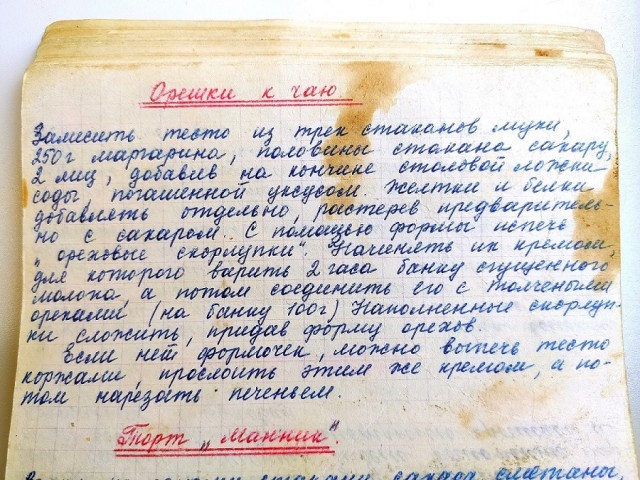 Орешки к чаю
Замесить тесто из трех стаканов муки,
250 г маргарина, половины стакана сахару,
2 яиц, добавив на кончике столовой ложки
соды, погашенной уксусом. Желтки и белки
добавлять отдельно, растерев предваритель-
но с сахаром. С помощью формы испечь
„ореховые скорлупки". Начинять их кремом,
для которого варить 2 часа банку сгущенного
молока, а потом соединить его с толчеными
орехами (на банку 100г) Наполненные скорлуп-
ки сложить, придав форму орехов.
Если нет формочек, можно выпечь тесто
коржами, прослоить этим же кремом, а по-
том нарезать печеньем.
Торт „Манник".
стакана сахара, сметаны,